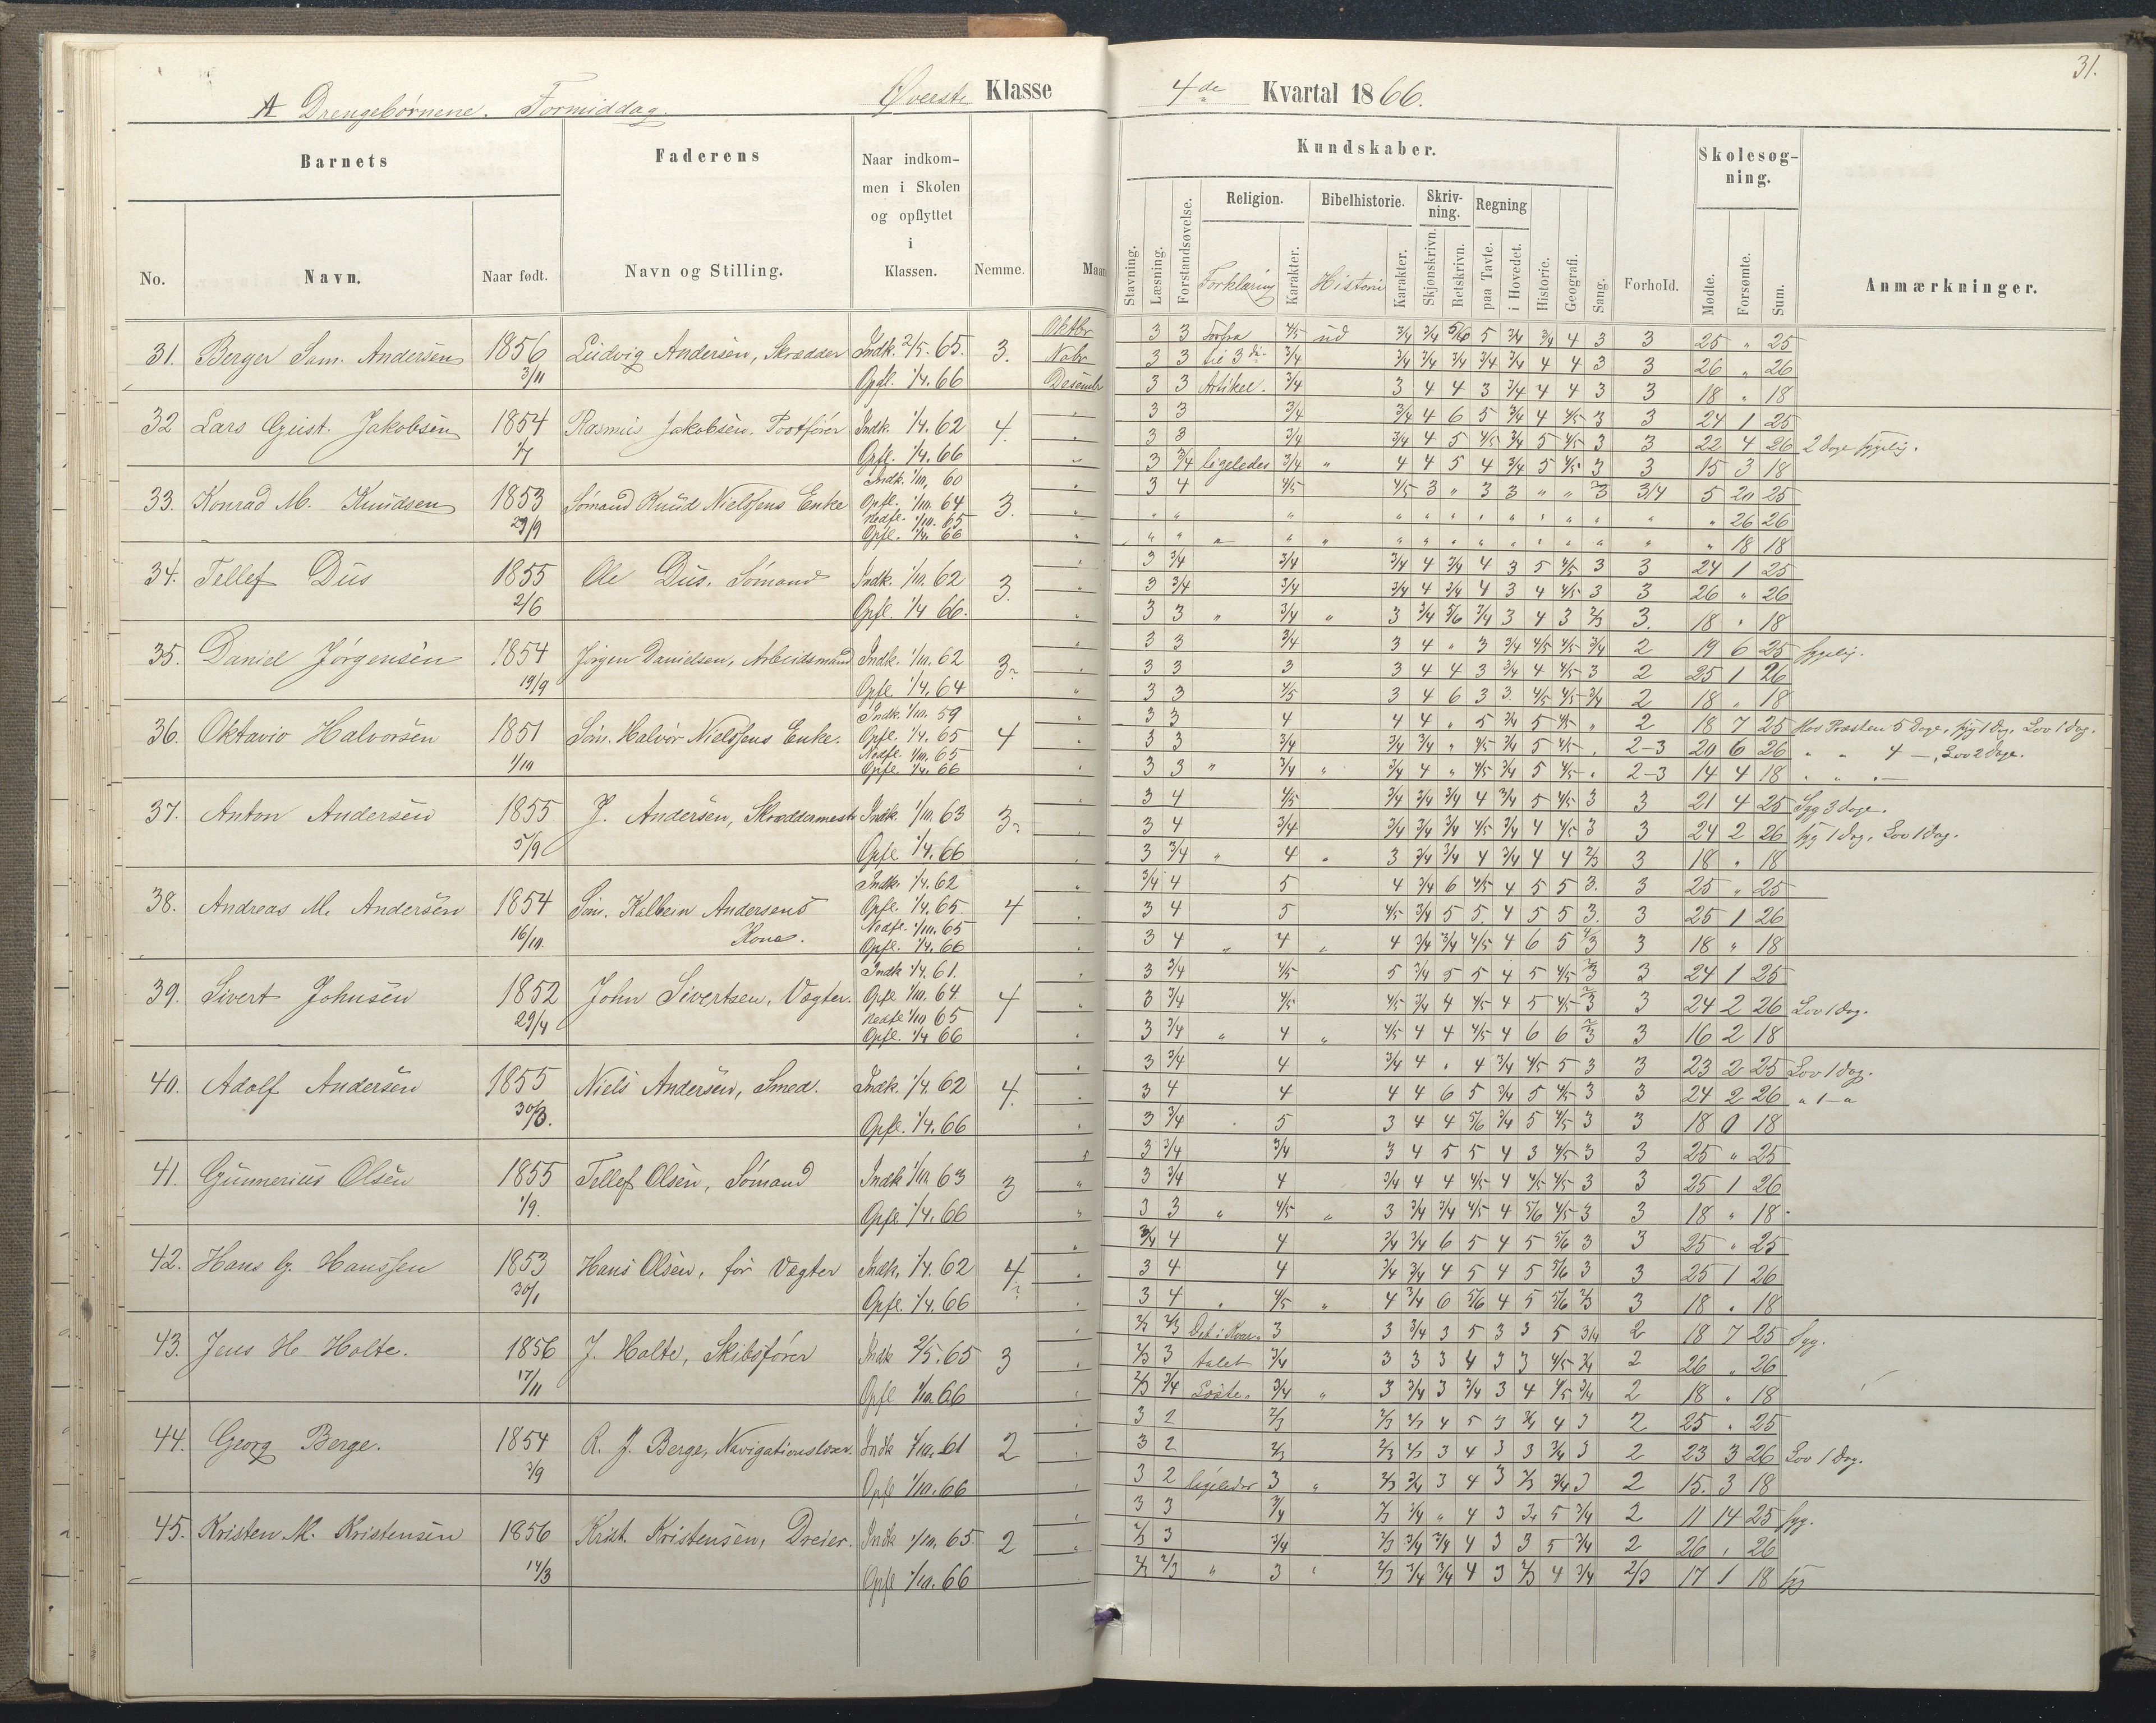 31.
A Drengebørnene. Formiddag. Øverste Klasse
4de Kvartal 1866.
Barnets
Faderens
Naar indkom-
men i Skolen
og opflyttet
i
Klassen.
No. Navn. Naar født. Navn og Stilling. Nemme.
Kundskaber.
Skolesøg-
ning.
Religion. Bibelhistorie. Skriv-
ning. Regning
Stavning. Læsning. Forstandsøvelse. Forklaring Karakter. Historie Karakter. Skjønskrivn. Retskrivn. paa Tavle. i Hovedet. Historie. Geografi. Sang. Forhold. Mødte. Forsømte. Sum. Anmærkninger.
31. Berger Sam. Andersen 1856 3/11 Ludvig Andersen, Skrædder Indk. 2/5. 65. Opfl. 1/4. 66 3.
Oktbr 3 3 Forfra 4/5 ud 3/4 3/4 5/6 5 3/4 3/4 4 3 3 25 " 25
Nobr 3 3 til 3di 3/4 3/4 3/4 3/4 3/4 3/4 4 4 3 3 26 " 26
Desembr 3 3 Artikel. 3/4 3 4 4 3 3/4 4 4 3 3 18 " 18
32 Lars Gust. Jakobsen 1854 1/7 Rasmus Jakobsen. Postfører Indk. 1/4. 62 Opfl. 1/4. 66 4.
3 3 3/4 3/4 4 6 5 3/4 4 4/5 3 3 24 1 25
3 3 3/4 3/4 4 5 4/5 3/4 5 4/5 3 3 22 4 26 2 Dage sygelig.
3 3/4 ligeledes 3/4 " 4 4 5 4 3/4 5 4/5 3 3 15 3 18
33. Konrad M. Knudsen 1853 29/9 Sømand Knud Nielssens Enke Indk. 1/10. 60 Opfl. 1/10. 64 Nedfl. 1/10. 65 Opfl. 1/4. 66 3.
3 4 4/5 4/5 3 " 3 3 " " 2/3 3/4 5 20 25
" 26 26
" 18 18
34. Tellef Dus 1855 2/6 Ole Dus. Sømand Indk. 1/10. 62 Opfl. 1/4 66. 3.
3 3/4 3/4 3/4 4 3/4 4 3 5 4/5 3 3 24 1 25
3 3/4 3/4 3/4 4 3/4 4 3 4 4/5 3 3 26 " 26
3 3 " 3/4 " 3 3/4 5/6 3/4 3 4 3 2/3 3. 18 " 18
35. Daniel Jørgensen 1854 19/9 Jørgen Danielsen, Arbeidsmand Indk. 1/10. 62 Opfl. 1/4. 64 3
3 3 3/4 3 4 " 3 3/4 4/5 4/5 3/4 2 19 6 25 sygelig.
3 3 3 3 4 4 3 3/4 4 4/5 3 2 25 1 26
3 3 4/5 3 4 6 3 3 4/5 4/5 3/4 2 18 " 18
36. Oktavio Halvorsen 1851 1/10 Søm. Halvor Nielssens Enke. Indk. 1/10. 59 Opfl. 1/4. 65 Nedfl. 1/10. 65 Opfl. 1/4. 66 4
3 3 4 4 4 " 5 3/4 5 4/5 " 2 18 7 25 Hos Præsten 5 Dage, syg 1 dag, Lov 1 dag.
3 3 3/4 3/4 3/4 " 4/5 3/4 5 4/5 " 2-3 20 6 26 " " 4 —, Lov 2 Dage.
3 3 " 3/4 " 3/4 4 " 4/5 3/4 5 4/5 " 2-3 14 4 18 " " " —
37. Anton Andersen 1855 5/9 J. Andersen, Skræddermester Indk. 1/10. 63 Opfl. 1/4. 66 3
3 4 4/5 3/4 3/4 3/4 4 3/4 5 4/5 3 3 21 4 25 Syg 3 Dage.
3 4 3/4 3/4 3/4 3/4 4/5 3/4 4 4/5 3 3 24 2 26 syg 1 dag, Lov 1 dag.
3 3/4 " 4 " 3 3/4 3/4 4 3/4 4 4 2/3 3 18 " 18
38. Andreas M. Andersen 1854 16/10 Søm. Kalbein Andersens Kone. Indk. 1/4. 62 Opfl. 1/4. 65. Nedfl. 1/10. 65 Opfl. 1/4. 66 4
3/4 4 5 4 3/4 6 4/5 4 5 5 3. 3 25 " 25
3 4 5 4/5 3/4 5 5 4 5 5 3. 3 25 1 26
3 4 " 4 " 4 3/4 3/4 4/5 4 6 5 2/3 3 18 " 18
39. Sivert Johnsen 1852 29/4 John Sivertsen, Vægter. Indk 1/4. 61. Opfl 1/10. 64 Nedfl 1/10 65 Opfl. 1/4 66 4
3 3/4 4/5 5 3/4 5 5 4 5 4/5 2/3 3 24 1 25
3 3/4 4/5 4/5 3/4 4 4/5 4 5 4/5 2/3 3 24 2 26 Lov 1 dag.
3 3/4 " 4 " 4/5 4 4 4/5 4 6 6 2/3 3 16 2 18
40. Adolf Andersen 1855 30/3. Niels Andersen, Smed. Indk. 1/4. 62 Opfl. 1/4. 66 4.
3 3/4 4 3/4 4 " 4 3/4 4/5 5 3 3 23 2 25 Lov 1 dag.
3 4 4 4 4 6 5 3/4 5 4/5 3 3 24 2 26 " 1 — "
3 3/4 5 3 4 4 5/6 3/4 5 4/5 3 3 18 0 18
41. Gunnerius Olsen 1855 1/9. Tellef Olsen, Sømand Indk 1/10. 63 Opfl 1/4. 66 3
3 3/4 3/4 3 4 5 5 4 3 4/5 3 3 25 " 25
3 3/4 4 3/4 4 4 4/5 4 4/5 4/5 3 3 25 1 26
3 3 " 4/5 " 3 3/4 3/4 4/5 4 5/6 4/5 3 3 18 " 18
42. Hans G. Hanssen 1853 30/1 Hans Olsen, før Vægter Indk. 1/4. 62 Opfl. 1/4. 66 4
3/4 4 4 3/4 3/4 6 5 4 5 5/6 3 3 25 " 25
3 4 4 3/4 3/4 4 5 4 5 5/6 3 3 25 1 26
3 4 " 4/5 " 4 3/4 6 5/6 4 5 5/6 2/3 3 18 " 18
43. Jens H Holte. 1856 17/11 J. Holte, Skibsfører Indk 2/5. 65 Opfl 1/10. 66 3
2/3 2/3 Det i Kvar- 3 3 3/4 3 5 3 3 5 3/4 2 18 7 25 Syg.
2/3 3 talet 3/4 3 3 3 4 3 3 4/5 3/4 2 26 " 26
2/3 3/4 Læste. 3/4 " 3 3/4 3 3/4 3 4 4/5 3/4 2 18 " 18
44. Georg Berge. 1854 3/9 R. J. Berge, Navigationslærer. Indk 1/10. 61 Opfl 1/10. 66 2
3 2 2/3 2/3 2/3 4 5 3 3/4 4 3 2 25 " 25
3 2 2/3 2/3 2/3 3 4 3 3 3/4 3 2 23 3 26 Lov 1 dag.
3 2 ligeledes 3 " 2/3 3/4 3 4 3 2/3 3/4 3 2 15. 3 18
45. Kristen M. Kristensen 1856 14/3 Krist. Kristensen, Dreier. Indk 1/10. 65. Opfl 1/10. 66 2
3 3 3/4 2/3 3/4 " 4 3 3 5 3/4 2 11 14 25 syg.
2/3 3 3/4 2/3 3/4 3/4 4 3 3 5 3/4 2 26 " 26
2/3 2/3 " 3 " 2/3 3/4 3/4 4 3 2/3 4 3/4 2/3 17 1 18 syg